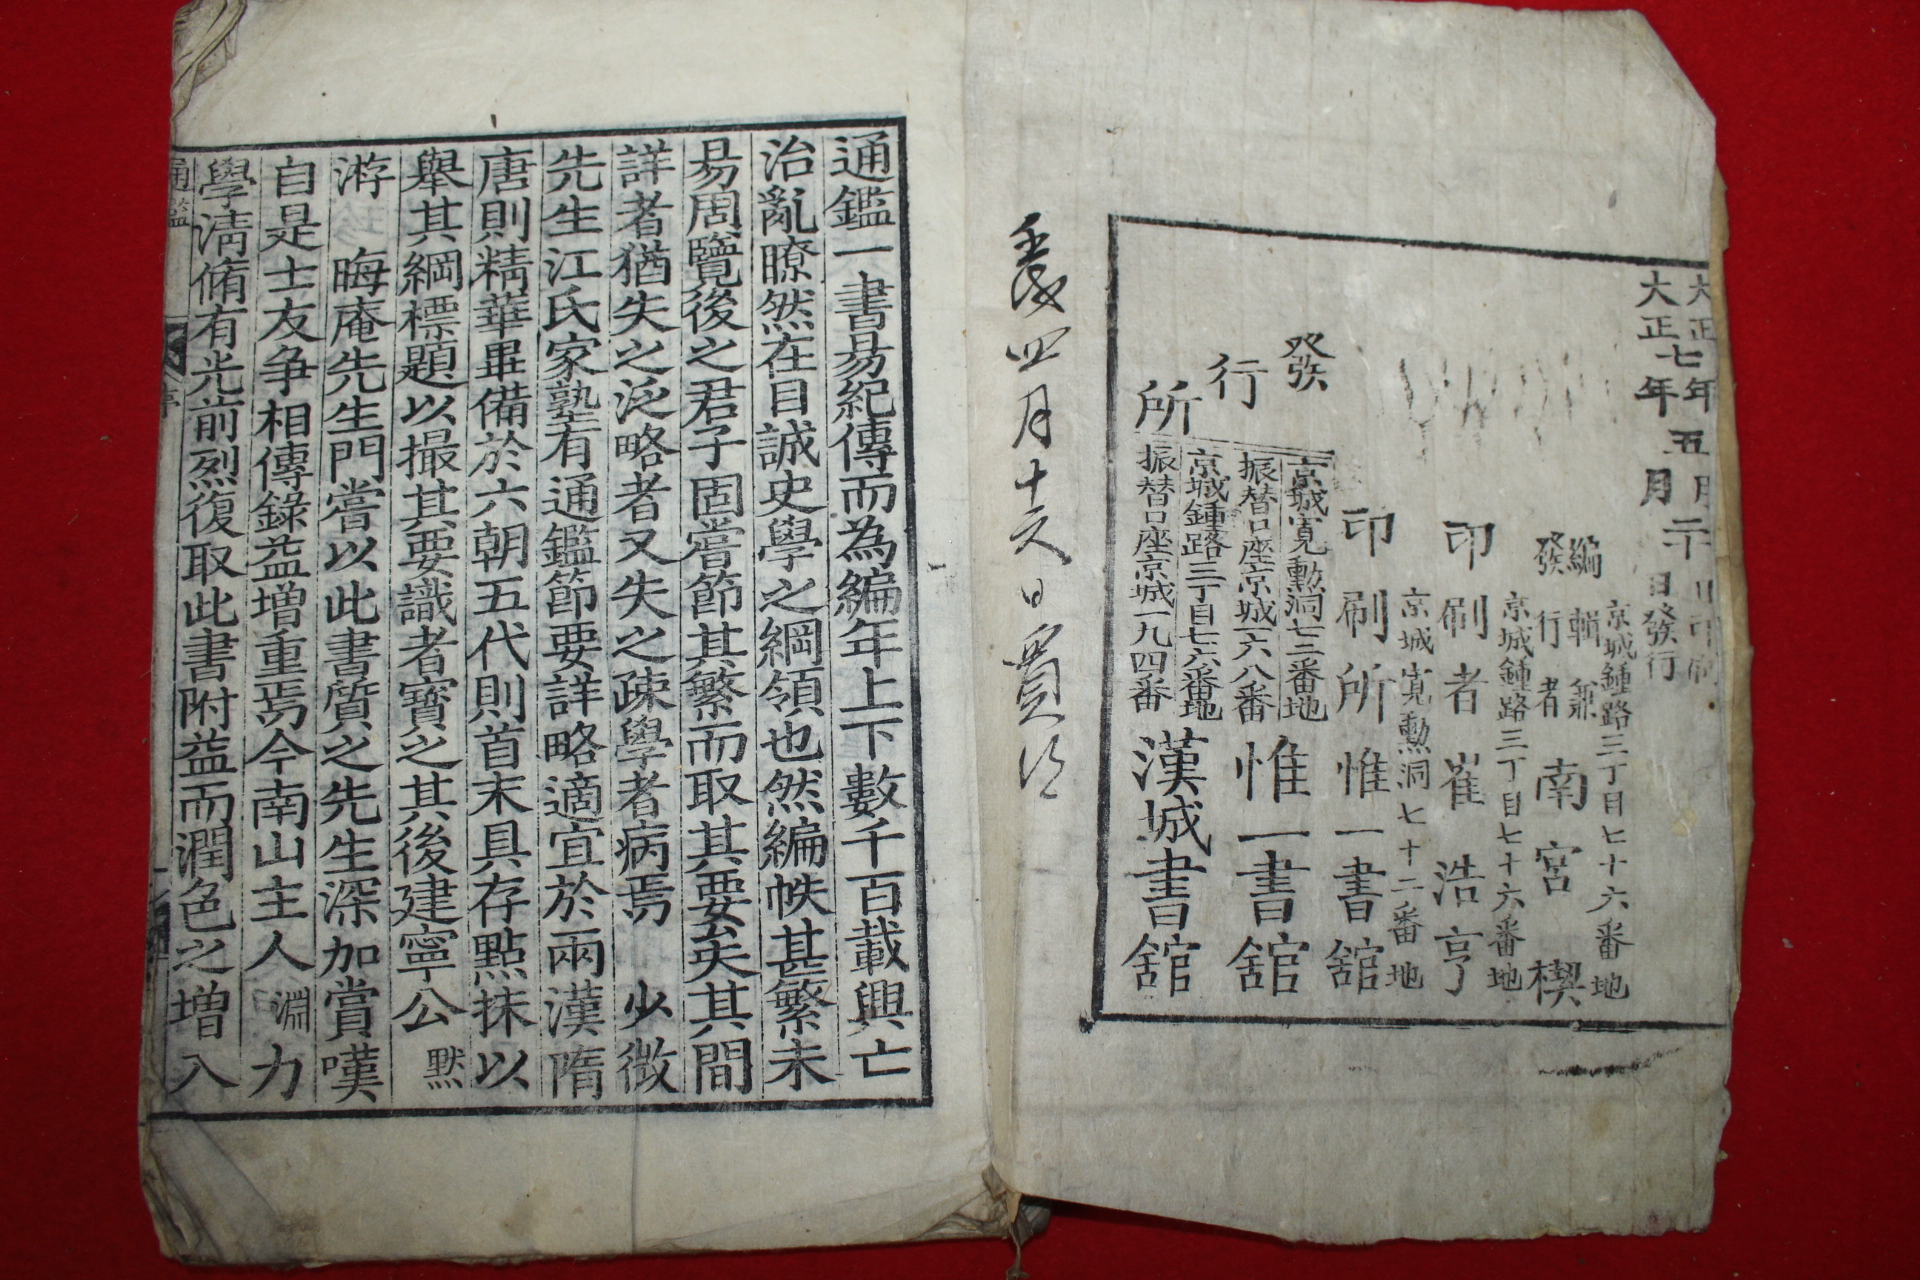 大正七年五月二十日印刷
大正七年五月二十 日發行
京城鍾路三丁目七十六番地
編輯兼
發行者 南宮楔
京城鍾路三丁目七十六番地
印刷者 崔浩亨
京城寬勳洞七十二番地
印刷所 惟一書舘
發行所
京城寬勳洞七二番地
振替口座京城六八番
惟一書舘
京城鍾路三丁目七六番地
振替口座京城一九四番
漢城書舘
四月十六日買
通鑑一書易紀傳而為編年上下數千百載興亡
治亂瞭然在目誠史學之綱領也然編帙甚繁未
易周覽後之君子固嘗節其繁而取其要矣其間
詳者猶失之泛略者又失之疎學者病焉 少微
先生江氏家塾有通鑑節要詳略適宜於兩漢隋
唐則精華畢備於六朝五代則首末具存點抹以
舉其綱標題以撮其要識者寶之其後建寧公默
游 晦庵先生門嘗以此書質之先生深加賞嘆
自是士友争相傳錄益增重焉今南山主人淵力
學淸脩有光前烈復取此書附益而潤色之增入
通鑑
序